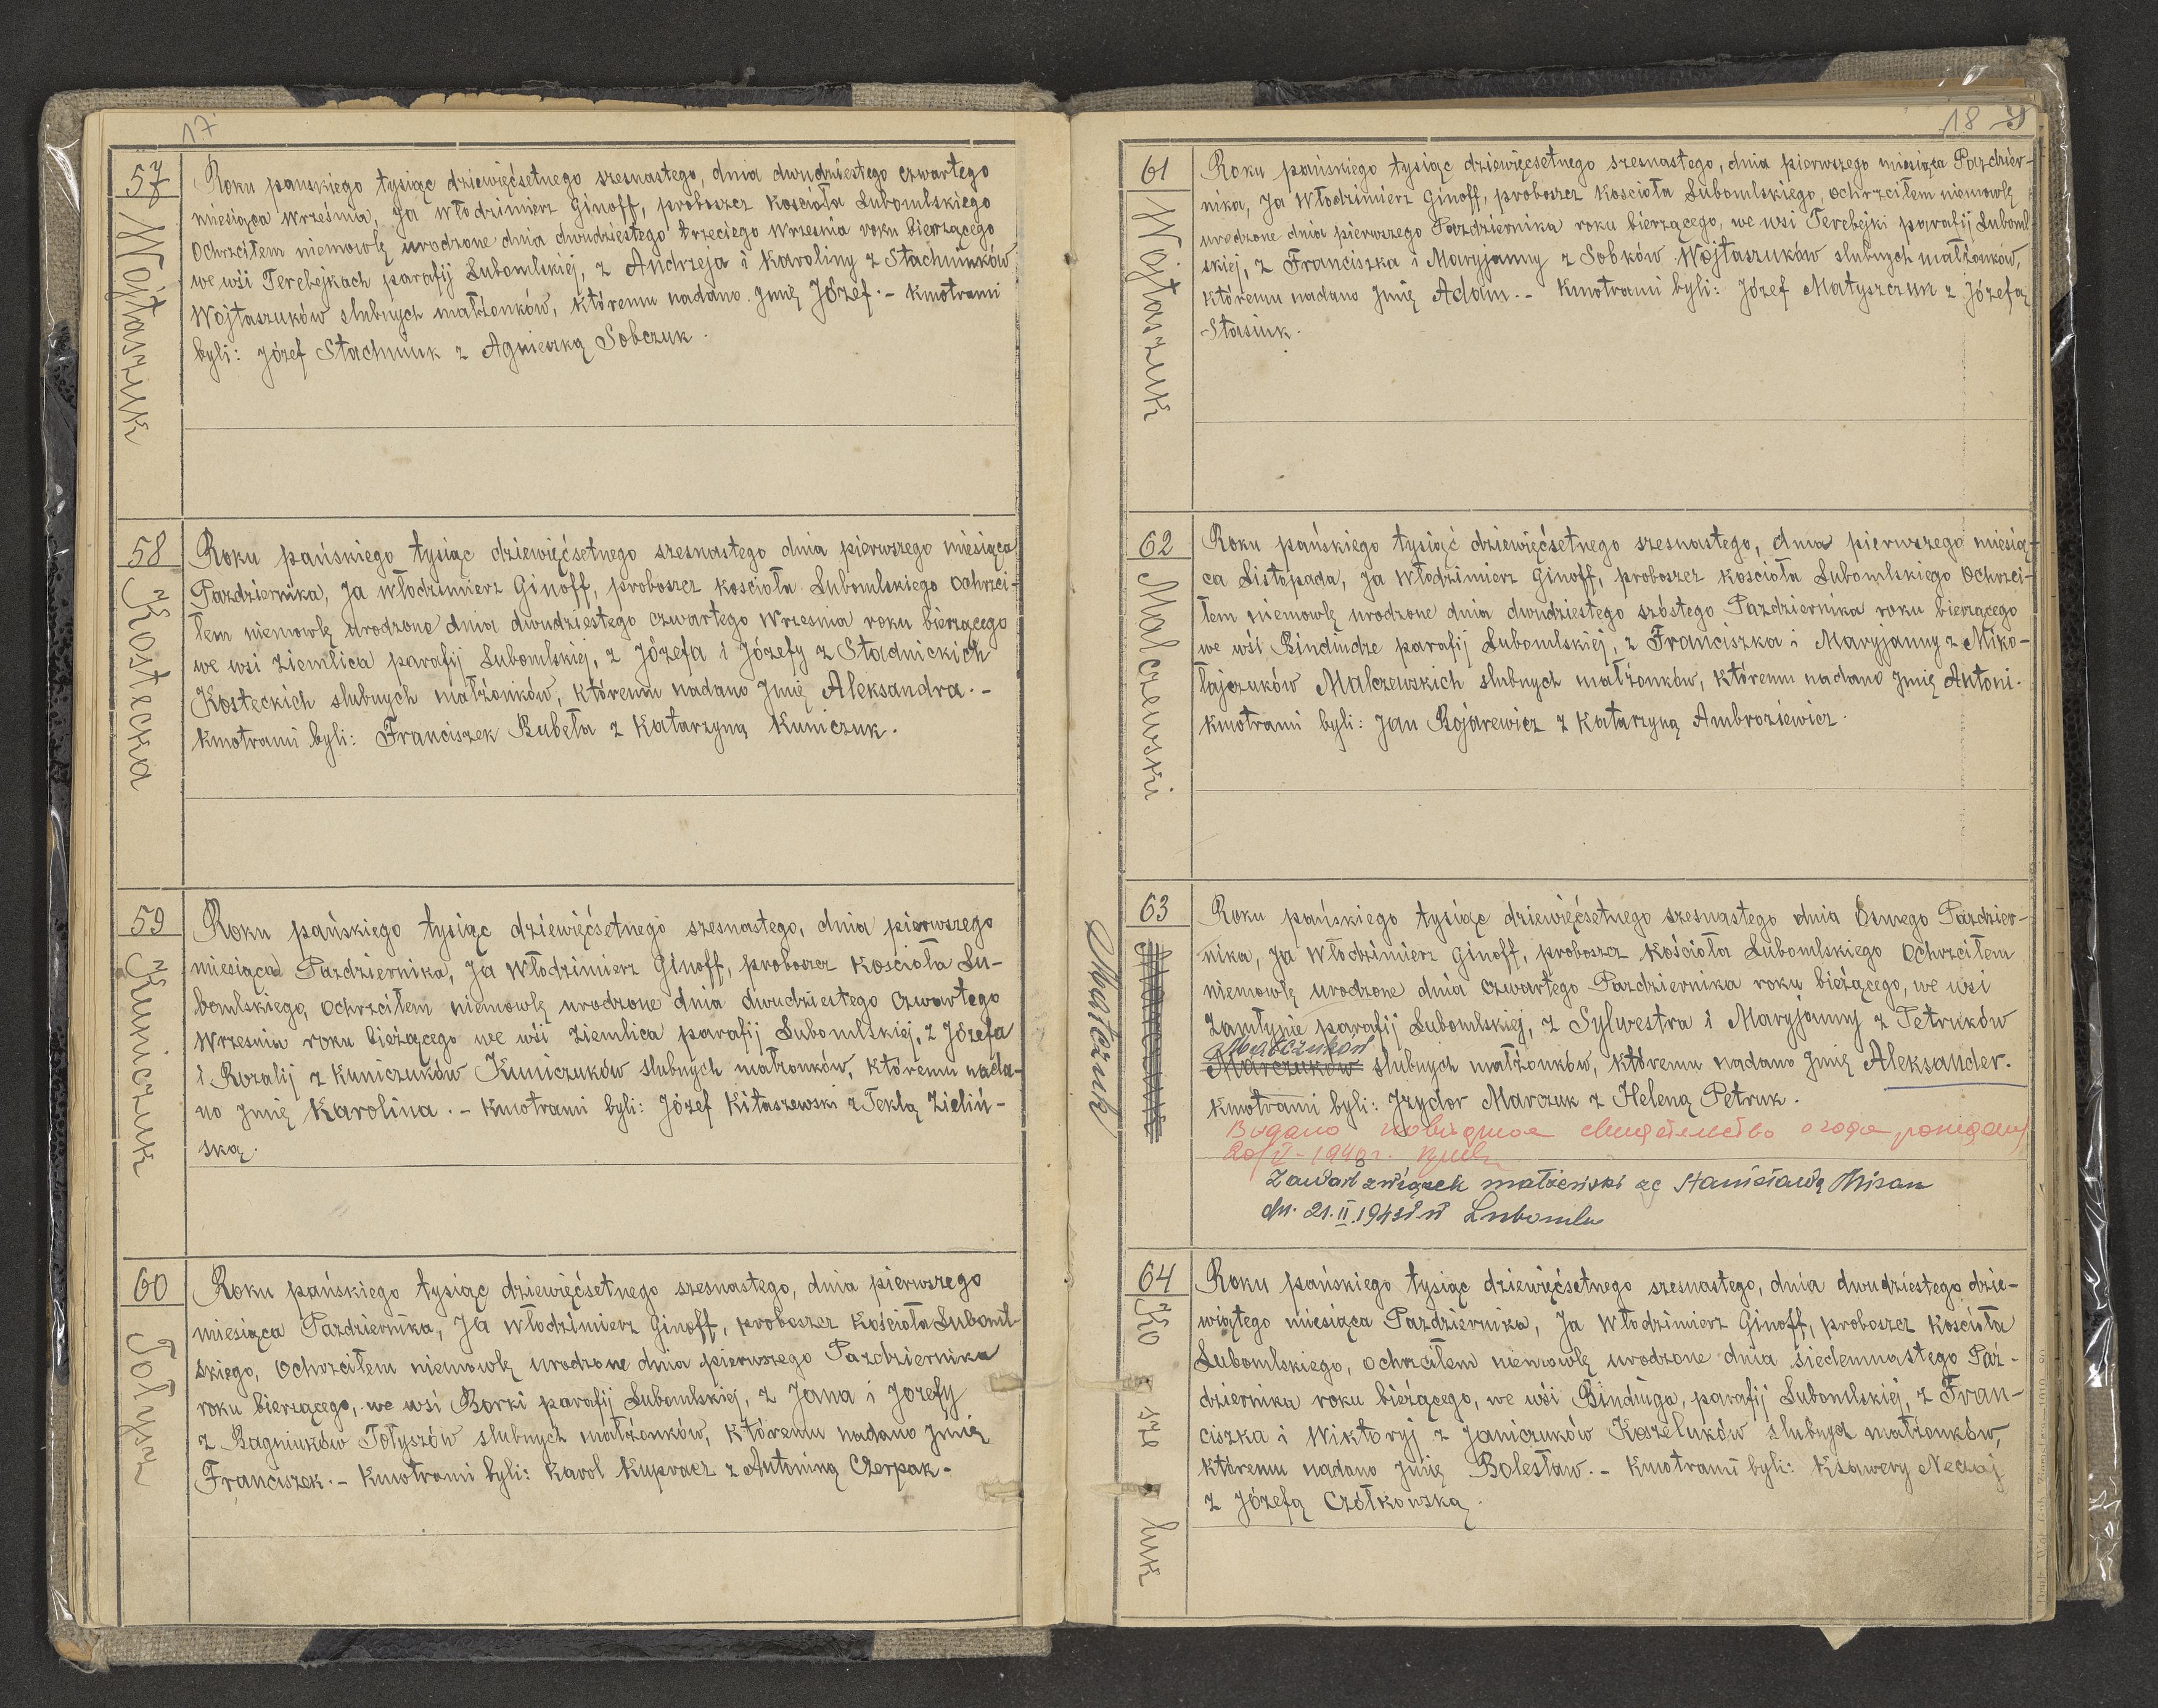 17
57
Wojtaszuk
Roku panskiego tysiąc dziewięćsetnego szesnastego, dnia dwudziestego czwartego
miesiąca Września, Ja Włodzimierz Ginoff, proboszcz Kościoła Lubomlskiego
Ochrzciłem niemowlę urodzone dnia dwudziestego trzeciego Wrzesnia roku bierzącego
we wsi Terebejkach parafij Lubomlskiej, z Andrzeja i Karoliny z Stachniuków
Wojtaszuków slubnych małżonków, któremu nadano Jmię Józef. - Kmotrami
byli: Józef Stachniuk z Agnieszką Sobczuk.
58
Kostecka
Roku pańskiego tysiąc dziewięćsetnego szesnastego dnia pierwszego miesiąca
Pazdziernika, Ja Włodzimierz Ginoff, proboszcz kościoła Lubomlskiego Ochrzci-
łem niemowlę urodzone dnia dwudziestego czwartego Wrzesnia roku bierzącego
we wsi Ziemlica parafij Lubomlskiej, z Józefa i Józefy z Stadnickich
Kosteckich slubnych małżonków, któremu nadano Jmię Aleksandra. -
Kmotrami byli: Franciszek Bubeła z Katarzyną Kuniczuk.
59
Kuniczuk
Roku pańskiego tysiąc dziewięćsetnego szesnastego, dnia pierwszego
miesiąca Pazdziernika, Ja Włodzimierz Ginoff, proboszcz Kościoła Lu-
bomlskiego, Ochrzciłem niemowlę urodzone dnia dwudziestego czwartego
Wrzesnia roku bieżącego we wsi Ziemlica parafij Lubomlskiej, z Józefa
i Rozalij z Kuniczuków Kuniczuków slubnych małżonków, któremu nada-
no Jmię Karolina. - Kmotrami byli: Józef Kitaszewski z Teklą Zieliń-
ską.
60
Tołysz
Roku pańskiego tysiąc dziewięćsetnego szesnastego, dnia pierwszego
miesiąca Pazdziernika, Ja Włodzimierz Ginoff, proboszcz Kościoła Luboml-
skiego, Ochrzciłem niemowlę urodzone dnia pierwszego Pazdziernika
roku bierzącego, we wsi Borki parafij Lubomlskiej, z Jana i Jozefy
z Bagniuków Tołyszów slubnych małżonków, któremu nadano Jmię
Franciszek. - Kmotrami byli: Karol Kupracz z Antoniną Czerpak -
18
61
Wojtaszuk
Roku pańskiego tysiąc dziewięcsetnego szesnastego, dnia pierwszego miesiąca Pazdzier-
nika, Ja Włodzimierz Ginoff, proboszcz Kościoła Lubomlskiego, Ochrzciłem niemowlę
urodzone dnia pierwszego Pazdziernika roku bierzącego, we wsi Terebejki parafij Luboml-
skiej, z Franciszka i Maryjanny z Sobków Wojtaszuków slubnych małżonków,
któremu nadano Jmię Adam. - Kmotrami byli: Józef Matyszczuk z Józefą
Stasiuk.
62
Malczewski
Roku pańskiego tysiąć dziewięćsetnego szesnastego, dnia pierwszego miesią-
ca Listopada, Ja Włodzimierz Ginoff, proboszcz Kościoła Lubomlskiego Ochrzci-
łem niemowlę urodzone dnia dwudziestego szóstego Pazdziernika roku bierzącego
we wsi Bindiudze parafij Lubomlskiej, z Franciszka i Maryjanny z Miko-
łajczuków Malczewskich slubnych małżonków, któremu nadano Jmię Antoni.
Kmotrami byli: Jan Bojarewicz z Katarzyną Ambroziewicz.
63
Matczuk
Roku pańskiego tysiąc dziewięćsetnego szesnastego dnia Osmego Pazdzier-
nika, Ja Włodzimierz Ginoff, proboszcz Kościoła Lubomlskiego Ochrzciłem
niemowlę urodzone dnia czwartego Pazdziernika roku bieżącego, we wsi
Zamłynie parafij Lubomlskiej, z Sylwestra i Maryjanny z Petruków
Matczuków
Marczuków slubnych małżonków, któremu nadano Jmię Aleksander.
Kmotrami byli: Jzydor Marczuk z Heleną Petruk.
свидетельство о годе
Zawarł związek małżeński ze Stanisławą Misan
dn. 21.II.1943 w Lubomlu
64
Koszeluk
Roku pańskiego tysiąc dziewięćsetnego szesnastego, dnia dwudziestego dzie-
wiątego miesiąca Pazdziernika, Ja Włodzimierz Ginoff, proboszcz Kościoła
Lubomlskiego, ochrzciłem niemowlę urodzone dnia siedemnastego Paź-
dziernika roku bieżącego, we wsi Bindiuga, parafij Lubomlskiej, z Fran-
ciszka i Wiktoryj z Janiczuków Koszeluków ślubnych małżonków,
któremu nadano Jmię Bolesław. - Kmotrami byli: Ksawery Neczaj
z Józefą Czółkowską.